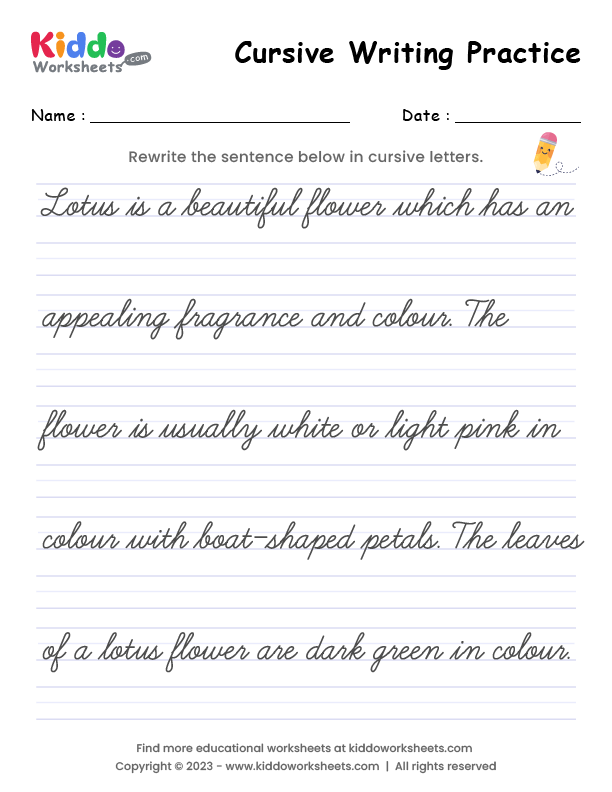 Kiddo
Worksheets .com
Cursive Writing Practice
Name :
Date :
Rewrite the sentence below in cursive letters.
Lotus is a beautiful flower which has an
appealing fragrance and colour. The
flower is usually white or light pink in
colour with boat-shaped petals. The leaves
of a lotus flower are dark green in colour.
Find more educational worksheets at kiddoworksheets.com
Copyright © 2023 - www.kiddoworksheets.com | All rights reserved